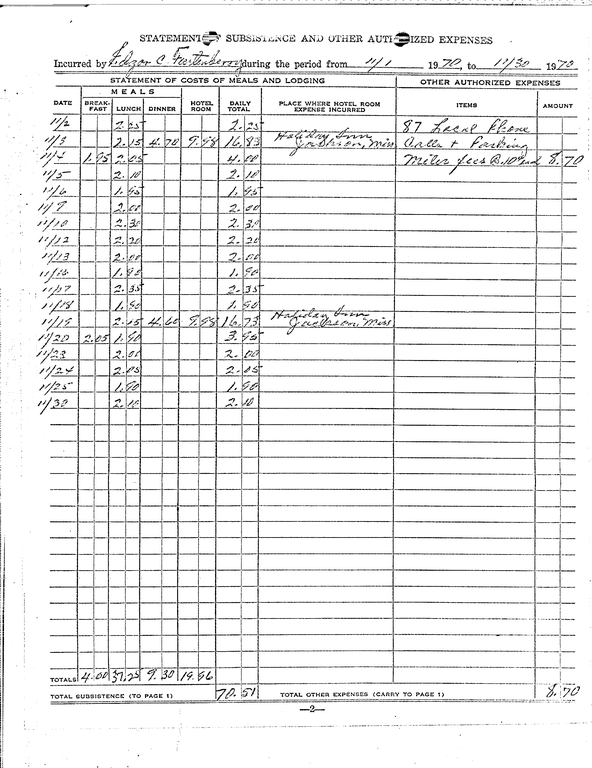 STATEMENT SUBSISTENCE AND OTHER AUTHORIZED EXPENSES
Incurred by C Fortenberry during the period from 11/1 1970, to 11/30 1970
STATEMENT OF COSTS OF MEALS AND LODGING OTHER AUTHORIZED EXPENSES
MEALS
DATE BREAK-FAST LUNCH DINNER HOTEL ROOM DAILY TOTAL PLACE WHERE HOTEL ROOM EXPENSE INCURRED ITEMS AMOUNT
11/2 2.25 2.25 87 Local Phone
11/3 2.15 4.70 9.98 16.83 Holiday Inn Jackson, Miss Calls + Parking
11/4 1.95 2.05 4.00 Meter fees @ .10 8.70
11/5 2.10 2.10
11/6 1.95 1.95
11/9 2.00 2.00
11/10 2.30 2.30
11/12 2.20 2.20
11/13 2.00 2.00
11/16 1.90 1.90
11/17 2.35 2.35
11/18 1.90 1.90
11/19 2.15 4.60 9.98 16.73 Holiday Inn Jackson, Miss
11/20 2.05 1.90 3.95
11/23 2.00 2.00
11/24 2.05 2.05
11/25 1.90 1.90
11/30 2.10 2.10
TOTALS 4.00 37.25 9.30 19.96
TOTAL SUBSISTENCE (TO PAGE 1) 70.51 TOTAL OTHER EXPENSES (CARRY TO PAGE 1) 8.70
—2—